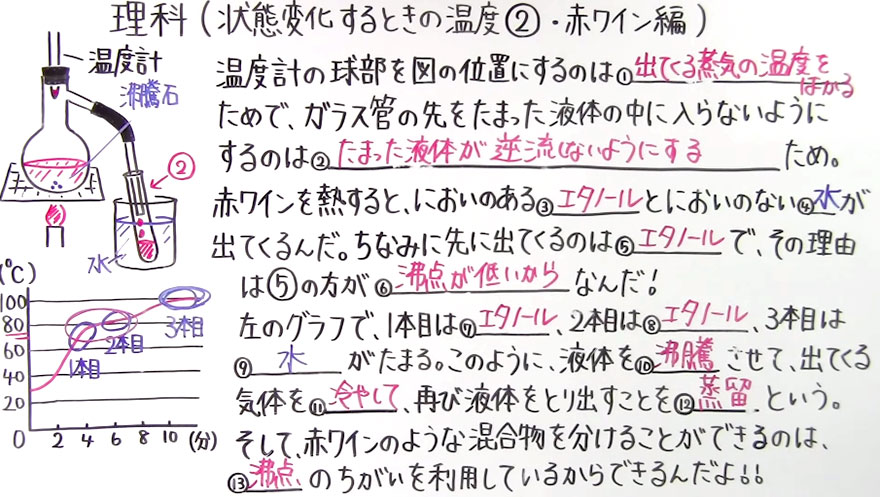 理科(状態変化するときの温度②・赤ワイン編)
温度計
沸騰石
②
水
温度計の球部を図の位置にするのは①出てくる蒸気の温度をはかる
ためで、ガラス管の先をたまった液体の中に入らないように
するのは②たまった液体が逆流しないようにするため。
赤ワインを熱すると、においのある③エタノールとにおいのない④水が
出てくるんだ。ちなみに先に出てくるのは⑤エタノールで、その理由
は⑤の方が⑥沸点が低いからなんだ!
左のグラフで、1本目は⑦エタノール、2本目は⑧エタノール、3本目は
⑨水がたまる。このように、液体を⑩沸騰させて、出てくる
気体を⑪冷やして、再び液体をとり出すことを⑫蒸留という。
そして、赤ワインのような混合物を分けることができるのは、
⑬沸点のちがいを利用しているからできるんだよ!!
(℃)
100
80
60
40
20
0 2 4 6 8 10 (分)
1本目
2本目
3本目